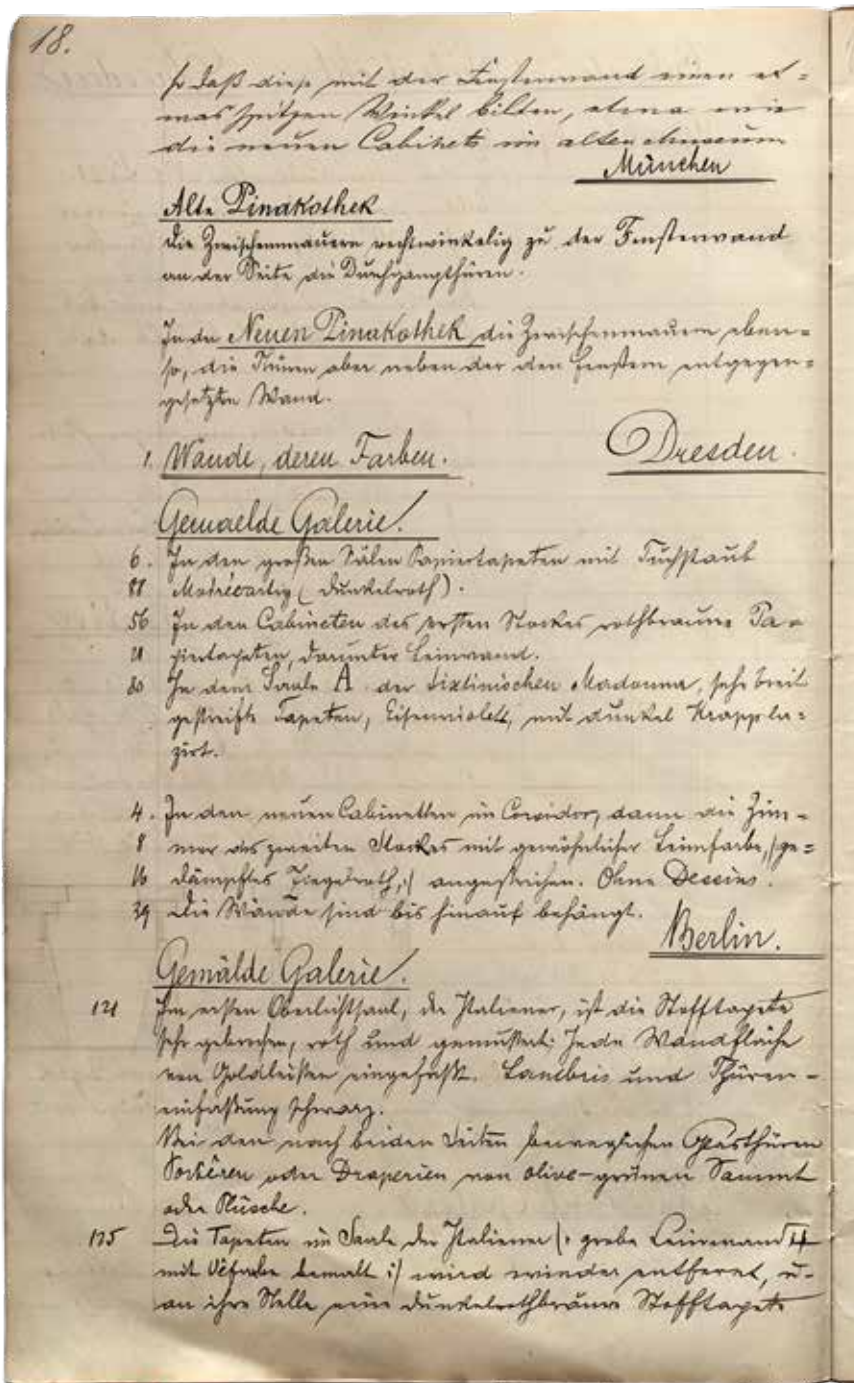 18.
so daß diese mit der Fensterwand einen et=
was spitzen Winkel bilden, etwa wie
die neuen Cabinets im alten Museum
München
Alte Pinakothek
die Zwischenmauern rechtwinkelig zu der Fensterwand
an der Seite die Durchgangthüren.
In der Neuen Pinakothek die Zwischenmauern eben=
so, die Thüren aber neben der den Fenstern entgegen=
gesetzten Wand.
1. Wände, deren Farben. Dresden.
Gemaelde Galerie.
6. In den großen Sälen Papiertapeten mit Tuchstaub
88 Moiréeartig (dunkelroth).
56 In den Cabineten des ersten Stockes rothbraune Pa=
21 piertapeten, darunter Leinwand.
80 In dem Saale A der Sixtinischen Madonna, sehr breit
gestreifte Tapeten, Eisenviolett, mit dunkel Krapp la=
zirt.
4. In den neuen Cabinetten im Corridor, dann die Zim=
8 mer des zweiten Stockes mit gewöhnlicher Leimfarbe, /:ge=
16 dämpftes Ziegelroth,:/ angestrichen. Ohne Dessins.
39 Die Wände sind bis hinauf behängt.
Berlin.
Gemälde Galerie.
121 Im ersten Oberlichtsaal, der Italiener, ist die Stofftapete
sehr gebrochen, roth und gemustert; Jede Wandfläche
von Goldleisten eingefaßt. Lambris und Thüren=
einfaßung schwarz.
Bei den nach beiden Seiten beweglichen Glasthüren
Portièren oder Draperien von olive-grünen Sammt
oder Plüsche.
175 Die Tapeten im Saale der Italiener /: grobe Leinwand
mit Ölfarbe bemalt :/ wird wieder entfernt, u.
an ihre Stelle eine dunkelrothbraune Stofftapete